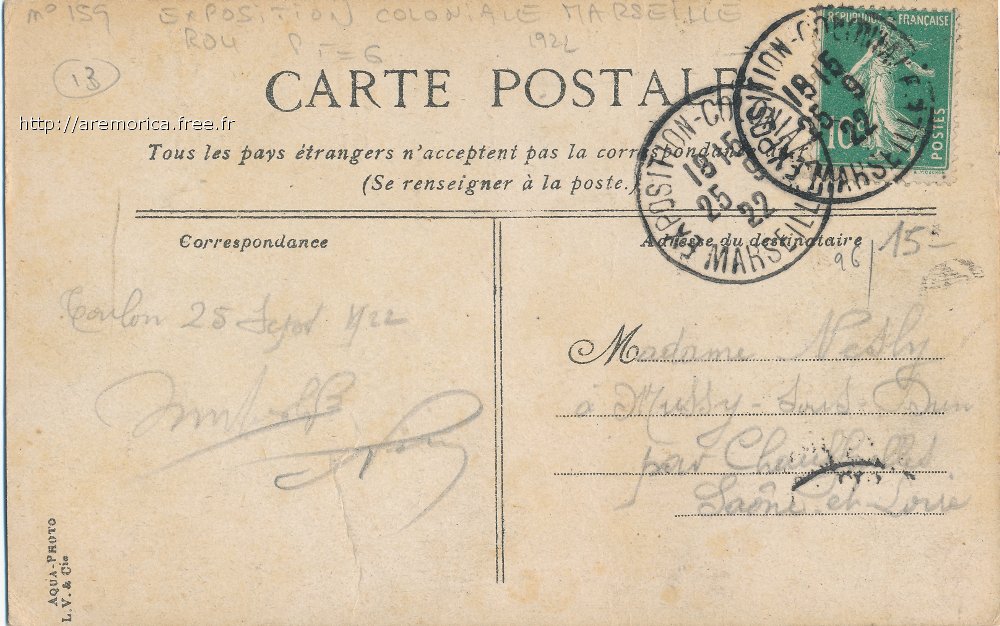 no 159 EXPOSITION COLONIALE MARSEILLE
ROU P I=6 1922
13
CARTE POSTALE
http://aremorica.free.fr
Tous les pays étrangers n'acceptent pas la correspondance
(Se renseigner à la poste.)
RÉPUBLIQUE FRANÇAISE
10
POSTES
EXPOSITION-COLONIALE MARSEILLE
18-15
25-9
22
EXPOSITION-COLONIALE MARSEILLE
18-15
25-9
22
Correspondance
Adresse du destinataire
96 15-
Toulon 25 Sept 1922
Madame
à Mussy-sous-Dun
par Chauffailles
Saône-et-Loire
AQUA-PHOTO
L.V. & Cie